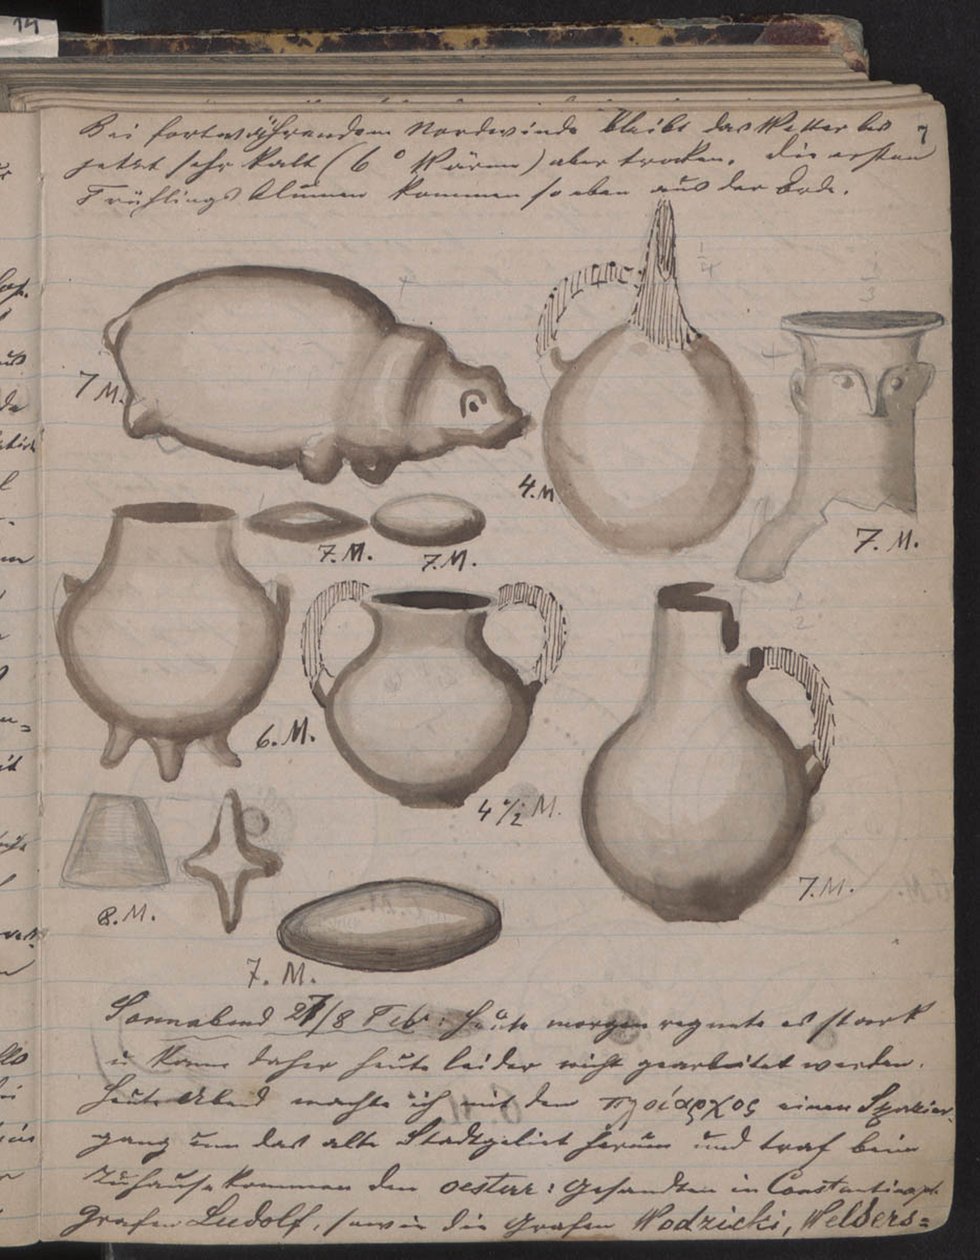 14
7
Bei fortwährendem Nordwinde bleibt das Wetter bis
jetzt sehr kalt (6° Wärme) aber trocken. Die ersten
Frühlingsblumen kommen so eben aus der Erde.
1/4
1/3
7 M.
4. M
7. M.
7. M.
7. M.
1/2
6. M.
4 1/2 M.
7. M.
8. M.
7. M.
Sonnabend 27/8 Feb: Heute morgen regnete es stark
u kann daher heute leider nicht gearbeitet werden.
Heute Abend machte ich mit dem πλοίαρχος einen Spazier-
gang um das alte Stadtgebiet herum und traf beim
Zuhausekommen den oesterr: Gesandten in Constantinopl.
Grafen Ludolf, sowie die Grafen Wodzicki, Welsers=